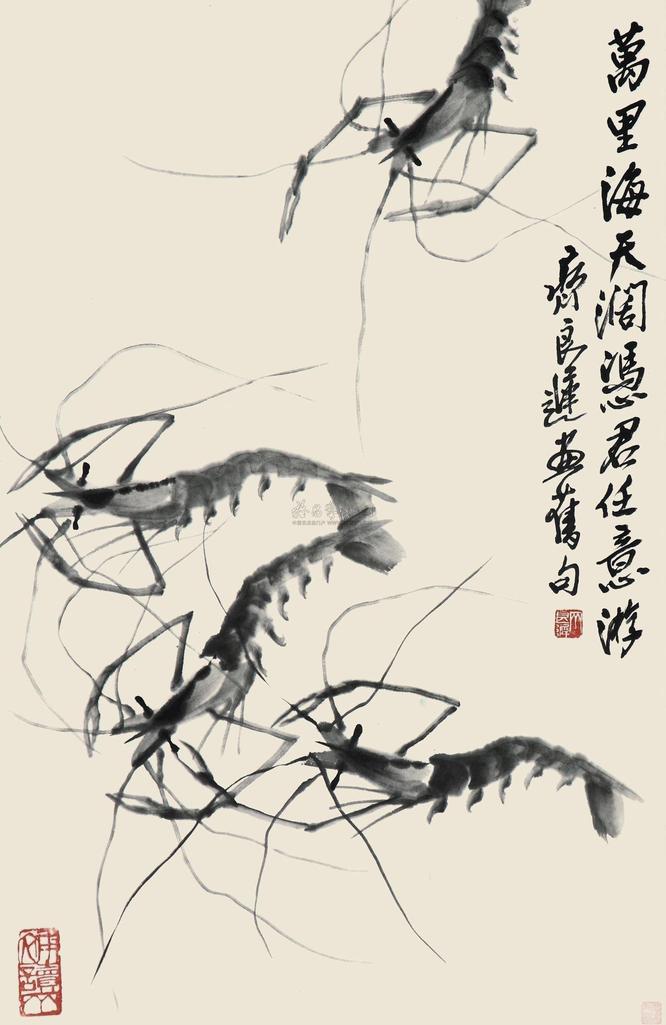 萬里海天濶憑君任意游
齊良遲畫舊句